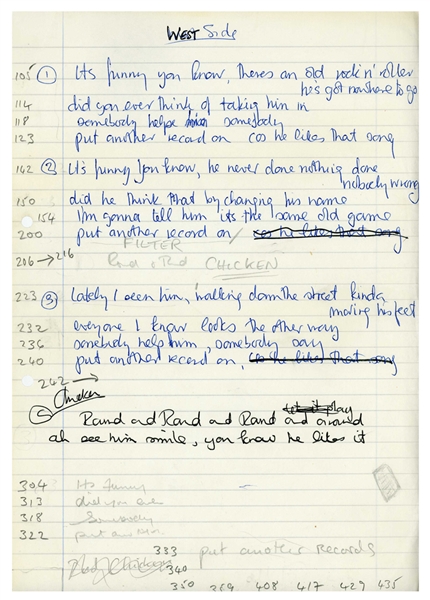 WEST Side
105 1 Its funny you know, theres an old rock n' roller
hes got nowhere to go
114 did you ever think of taking him in
118 somebody helpe him somebody
123 put another record on cos he likes that song
142 2 Its funny you know, he never done nothing done
nobody wrong
150 did he think that by changing his name
154 I'm gonna tell him its the same old game
200 put another record on / cos he likes that song
FILTER
206 → 216 CHICKEN
223 3 lately I seen him, walking down the street kinda
moving his feet
232 everyone I know looks the other way
236 somebody help him, somebody say
240 put another record on, cos he likes that song
242 →
Chicken
let it play
Round and Round and Round and around
ah see him smile, you know he likes it
304 Its funny
313 did you ever
318 Somebody
322 put another
333 put another Records
Chicken 340
350 359 408 417 429 435